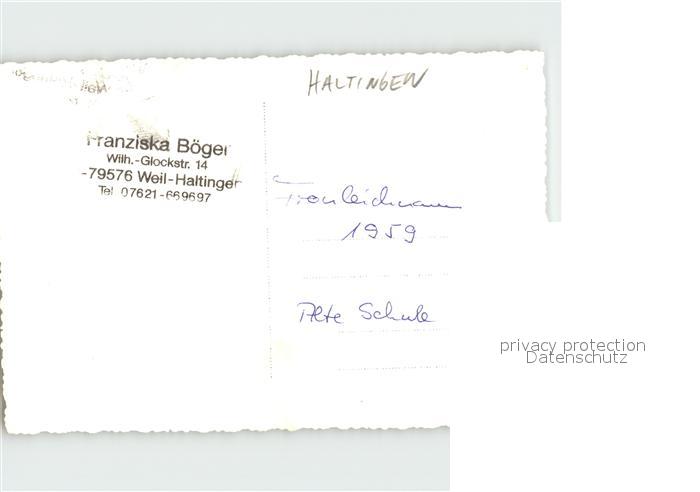 HALTINGEN
Franziska Böger
Wilh.-Glockstr. 14
-79576 Weil-Haltingen
Tel 07621-669697
Fronleichnam
1959
Alte Schule
privacy protection
Datenschutz